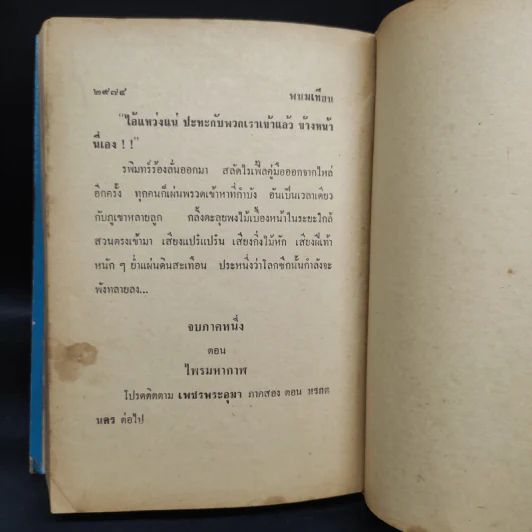 ๒๙๗๔ พนมเทียน
"ไอ้แหว่งแน่ ปะทะกับพวกเราเข้าแล้ว ข้างหน้า
นี่เอง ! !"
รพินทร์ร้องลั่นออกมา สลัดไรเฟิลคู่มือออกจากไหล่
อีกครั้ง ทุกคนก็เผ่นพรวดเข้าหาที่กำบัง อันเป็นเวลาเดียว
กับภูเขาหลายลูก กลิ้งตะลุยพงไม้เบื้องหน้าในระยะใกล้
สวนตรงเข้ามา เสียงแปร๋แปร้น เสียงกิ่งไม้หัก เสียงฝีเท้า
หนัก ๆ ย่ำแผ่นดินสะเทือน ประหนึ่งว่าโลกซีกนั้นกำลังจะ
พังทลายลง...
จบภาคหนึ่ง
ตอน
ไพรมหากาฬ
โปรดติดตาม เพชรพระอุมา ภาคสอง ตอน มรกต
นคร ต่อไป